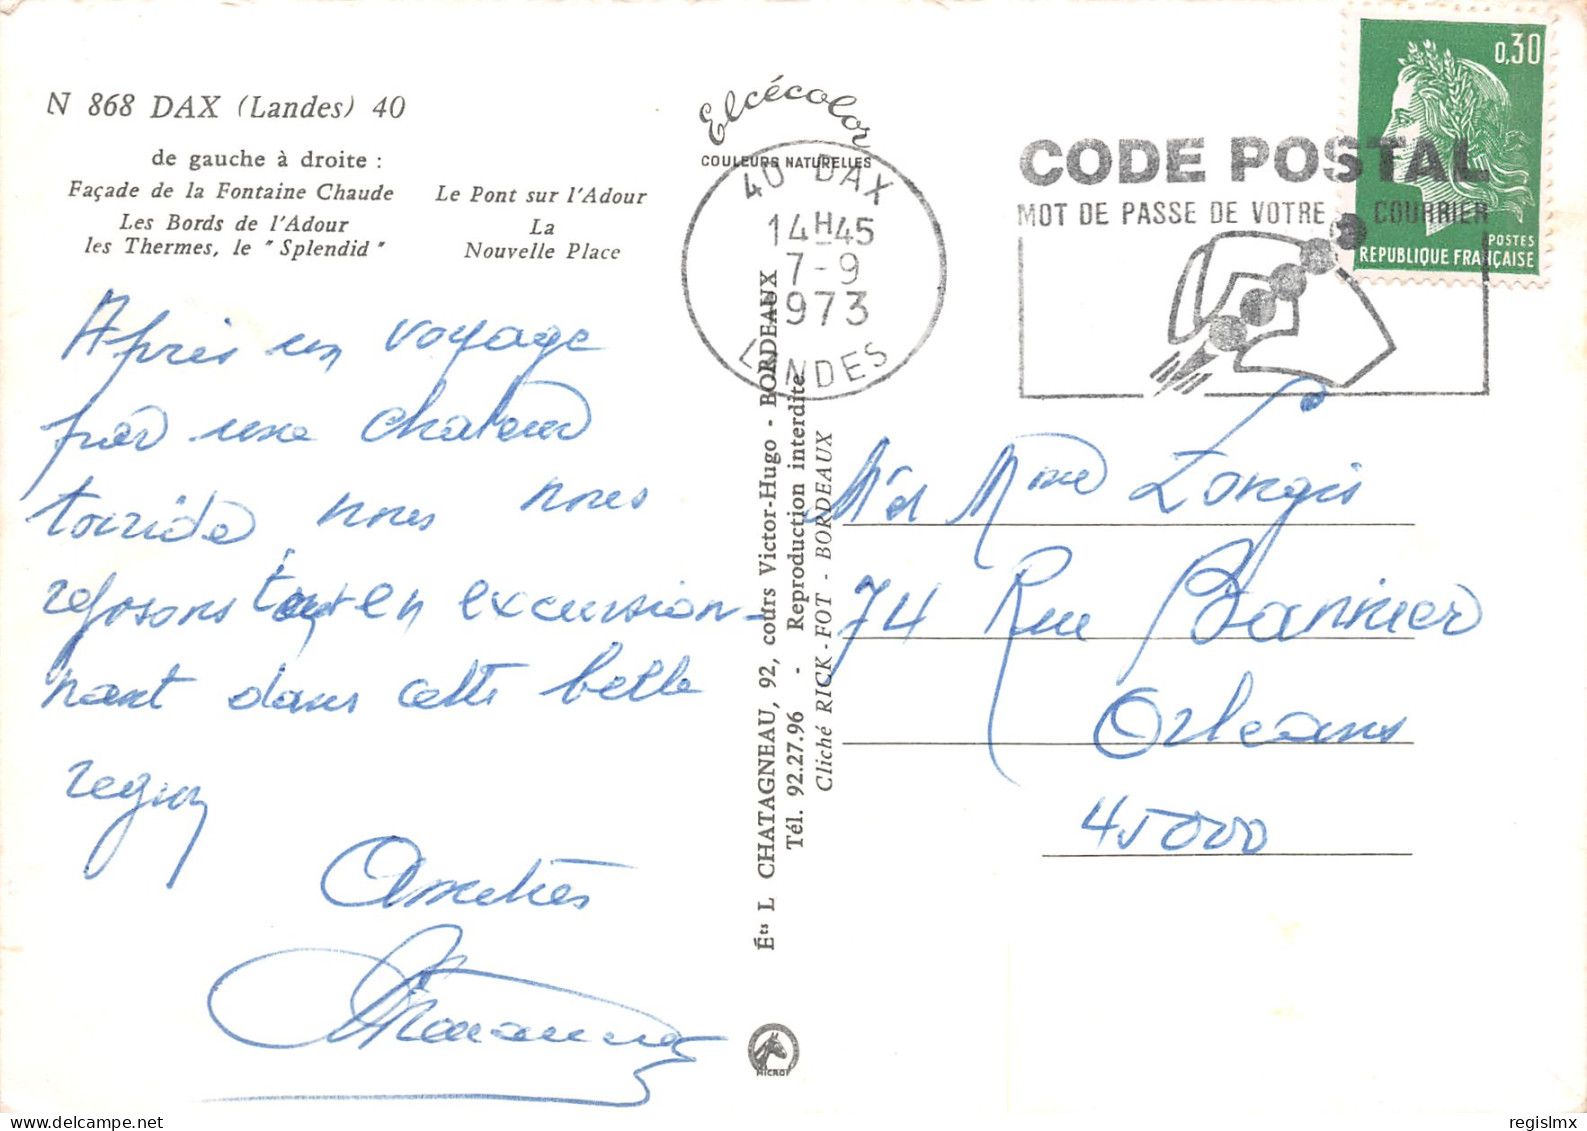 N 868 DAX (Landes) 40
de gauche à droite :
Façade de la Fontaine Chaude
Les Bords de l'Adour
les Thermes, le "Splendid"
Le Pont sur l'Adour
La
Nouvelle Place
Après un voyage
par une chaleur
torride nous nous
reposons tout en excursion-
nant dans cette belle
region
Amitiés
Elcécolor
COULEURS NATURELLES
40 DAX
14H45
7-9
1973
LANDES
Éts L CHATAGNEAU, 92, cours Victor-Hugo - BORDEAUX
Tél. 92.27.96 - Reproduction interdite
Cliché RICK-FOT - BORDEAUX
MICROF
CODE POSTAL
MOT DE PASSE DE VOTRE COURRIER
0,30
POSTES
REPUBLIQUE FRANÇAISE
Mr et Mme Longis
74 Rue Bannier
Orleans
45000
regislmx